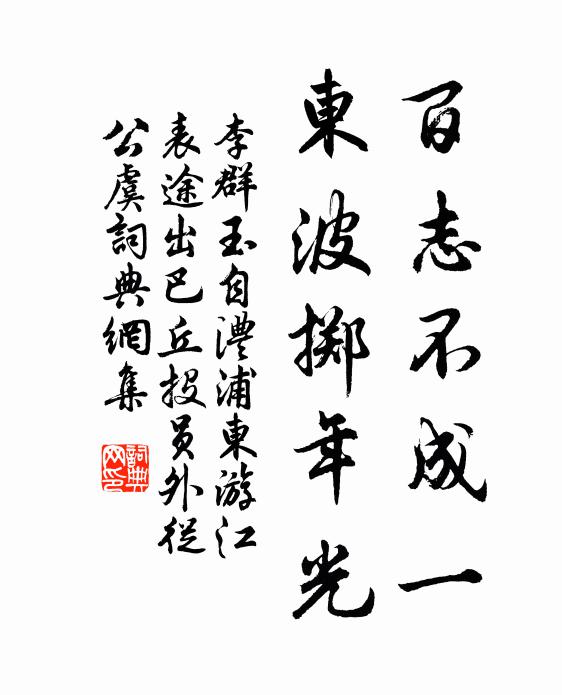 百志不成一
東波擲年光
李群玉自澧浦東游江
表途出巴丘投員外從
公虞詞典網集
詞典
网印